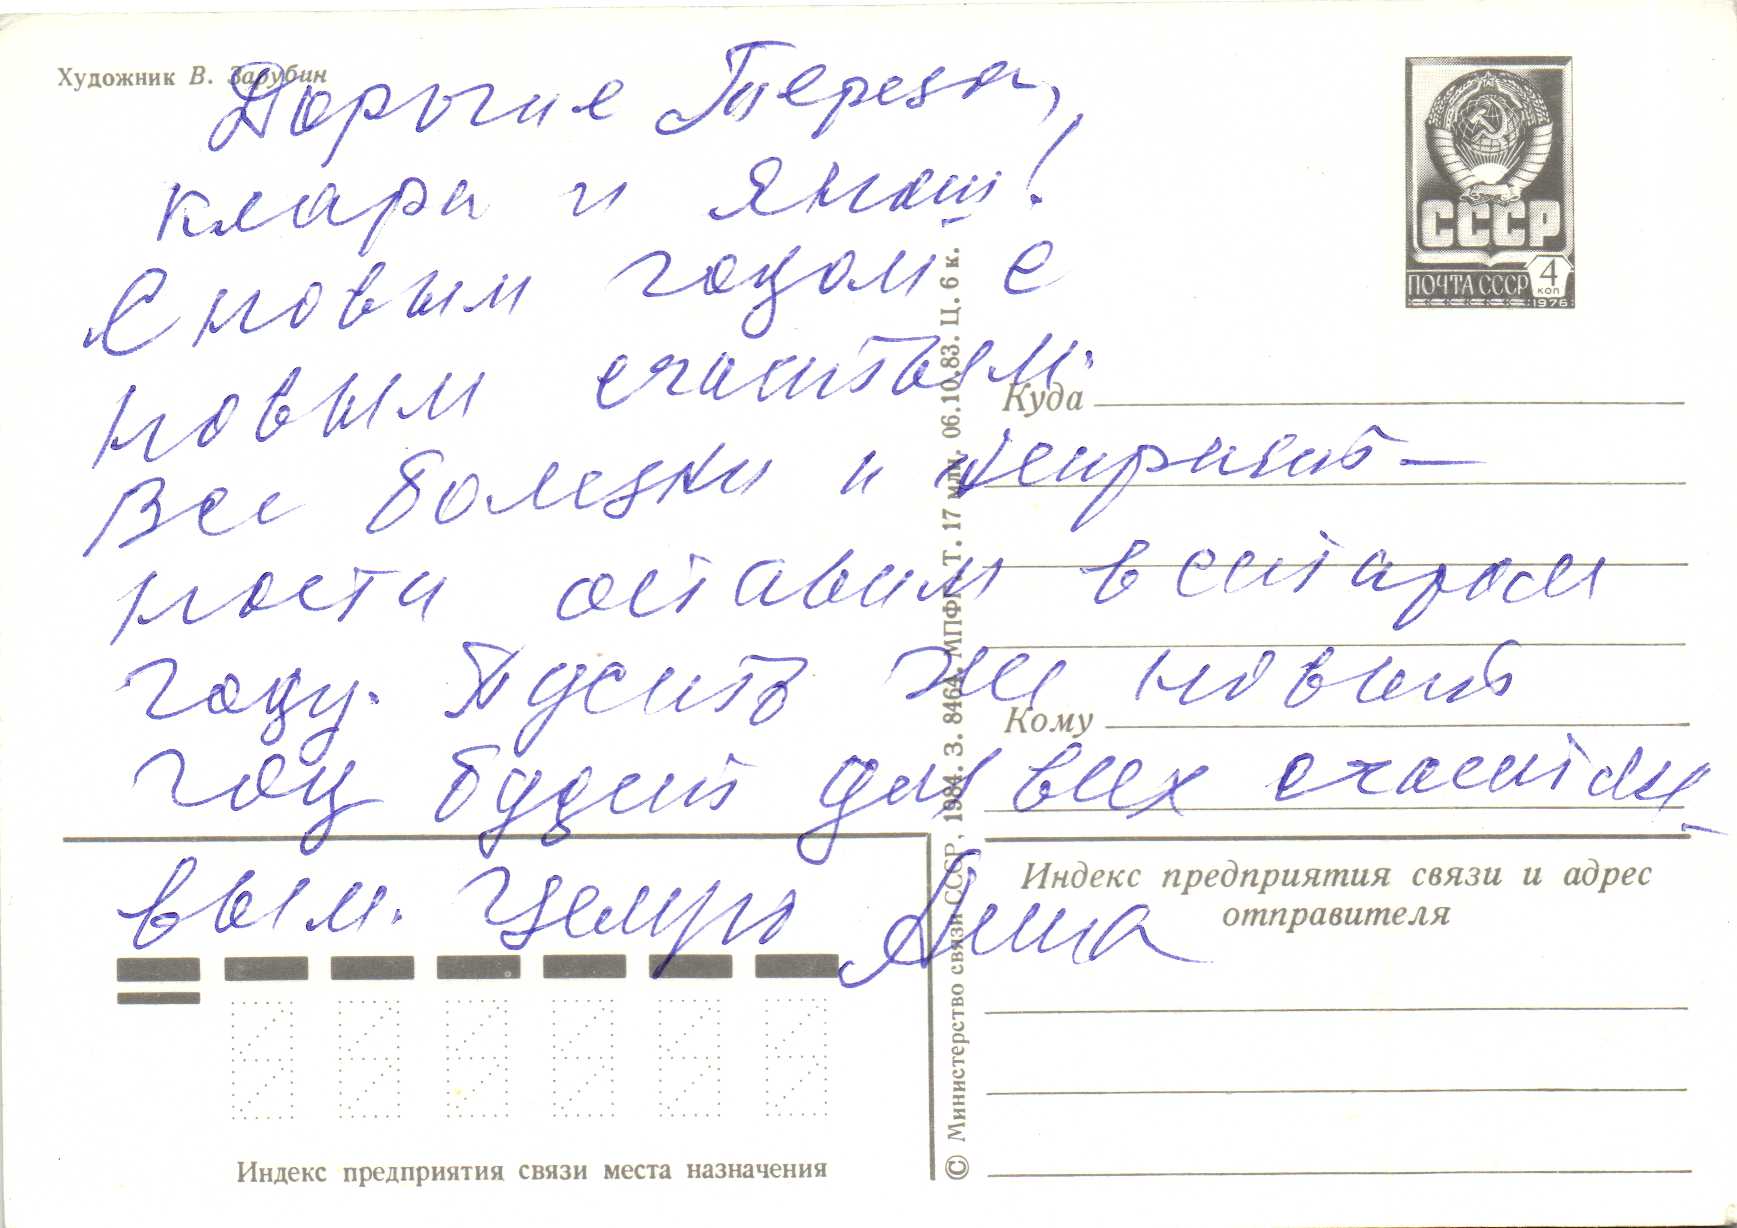 Художник В. Зарубин
Дорогие Тереза,
Клара и Янош!
С новым годом с
новым счастьям.
Все болезни и неприят-
ности оставим в старом
году. Пусть же новый
год будет для всех счастли
вым. Целую Анна
СССР
ПОЧТА СССР 4
КОП
1976
Куда
Кому
Индекс предприятия связи и адрес
отправителя
Индекс предприятия связи места назначения
© Министерство связи СССР, 1984. З. 8464. МПФГ. Т. 17 млн. 06.10.83. Ц. 6 к.